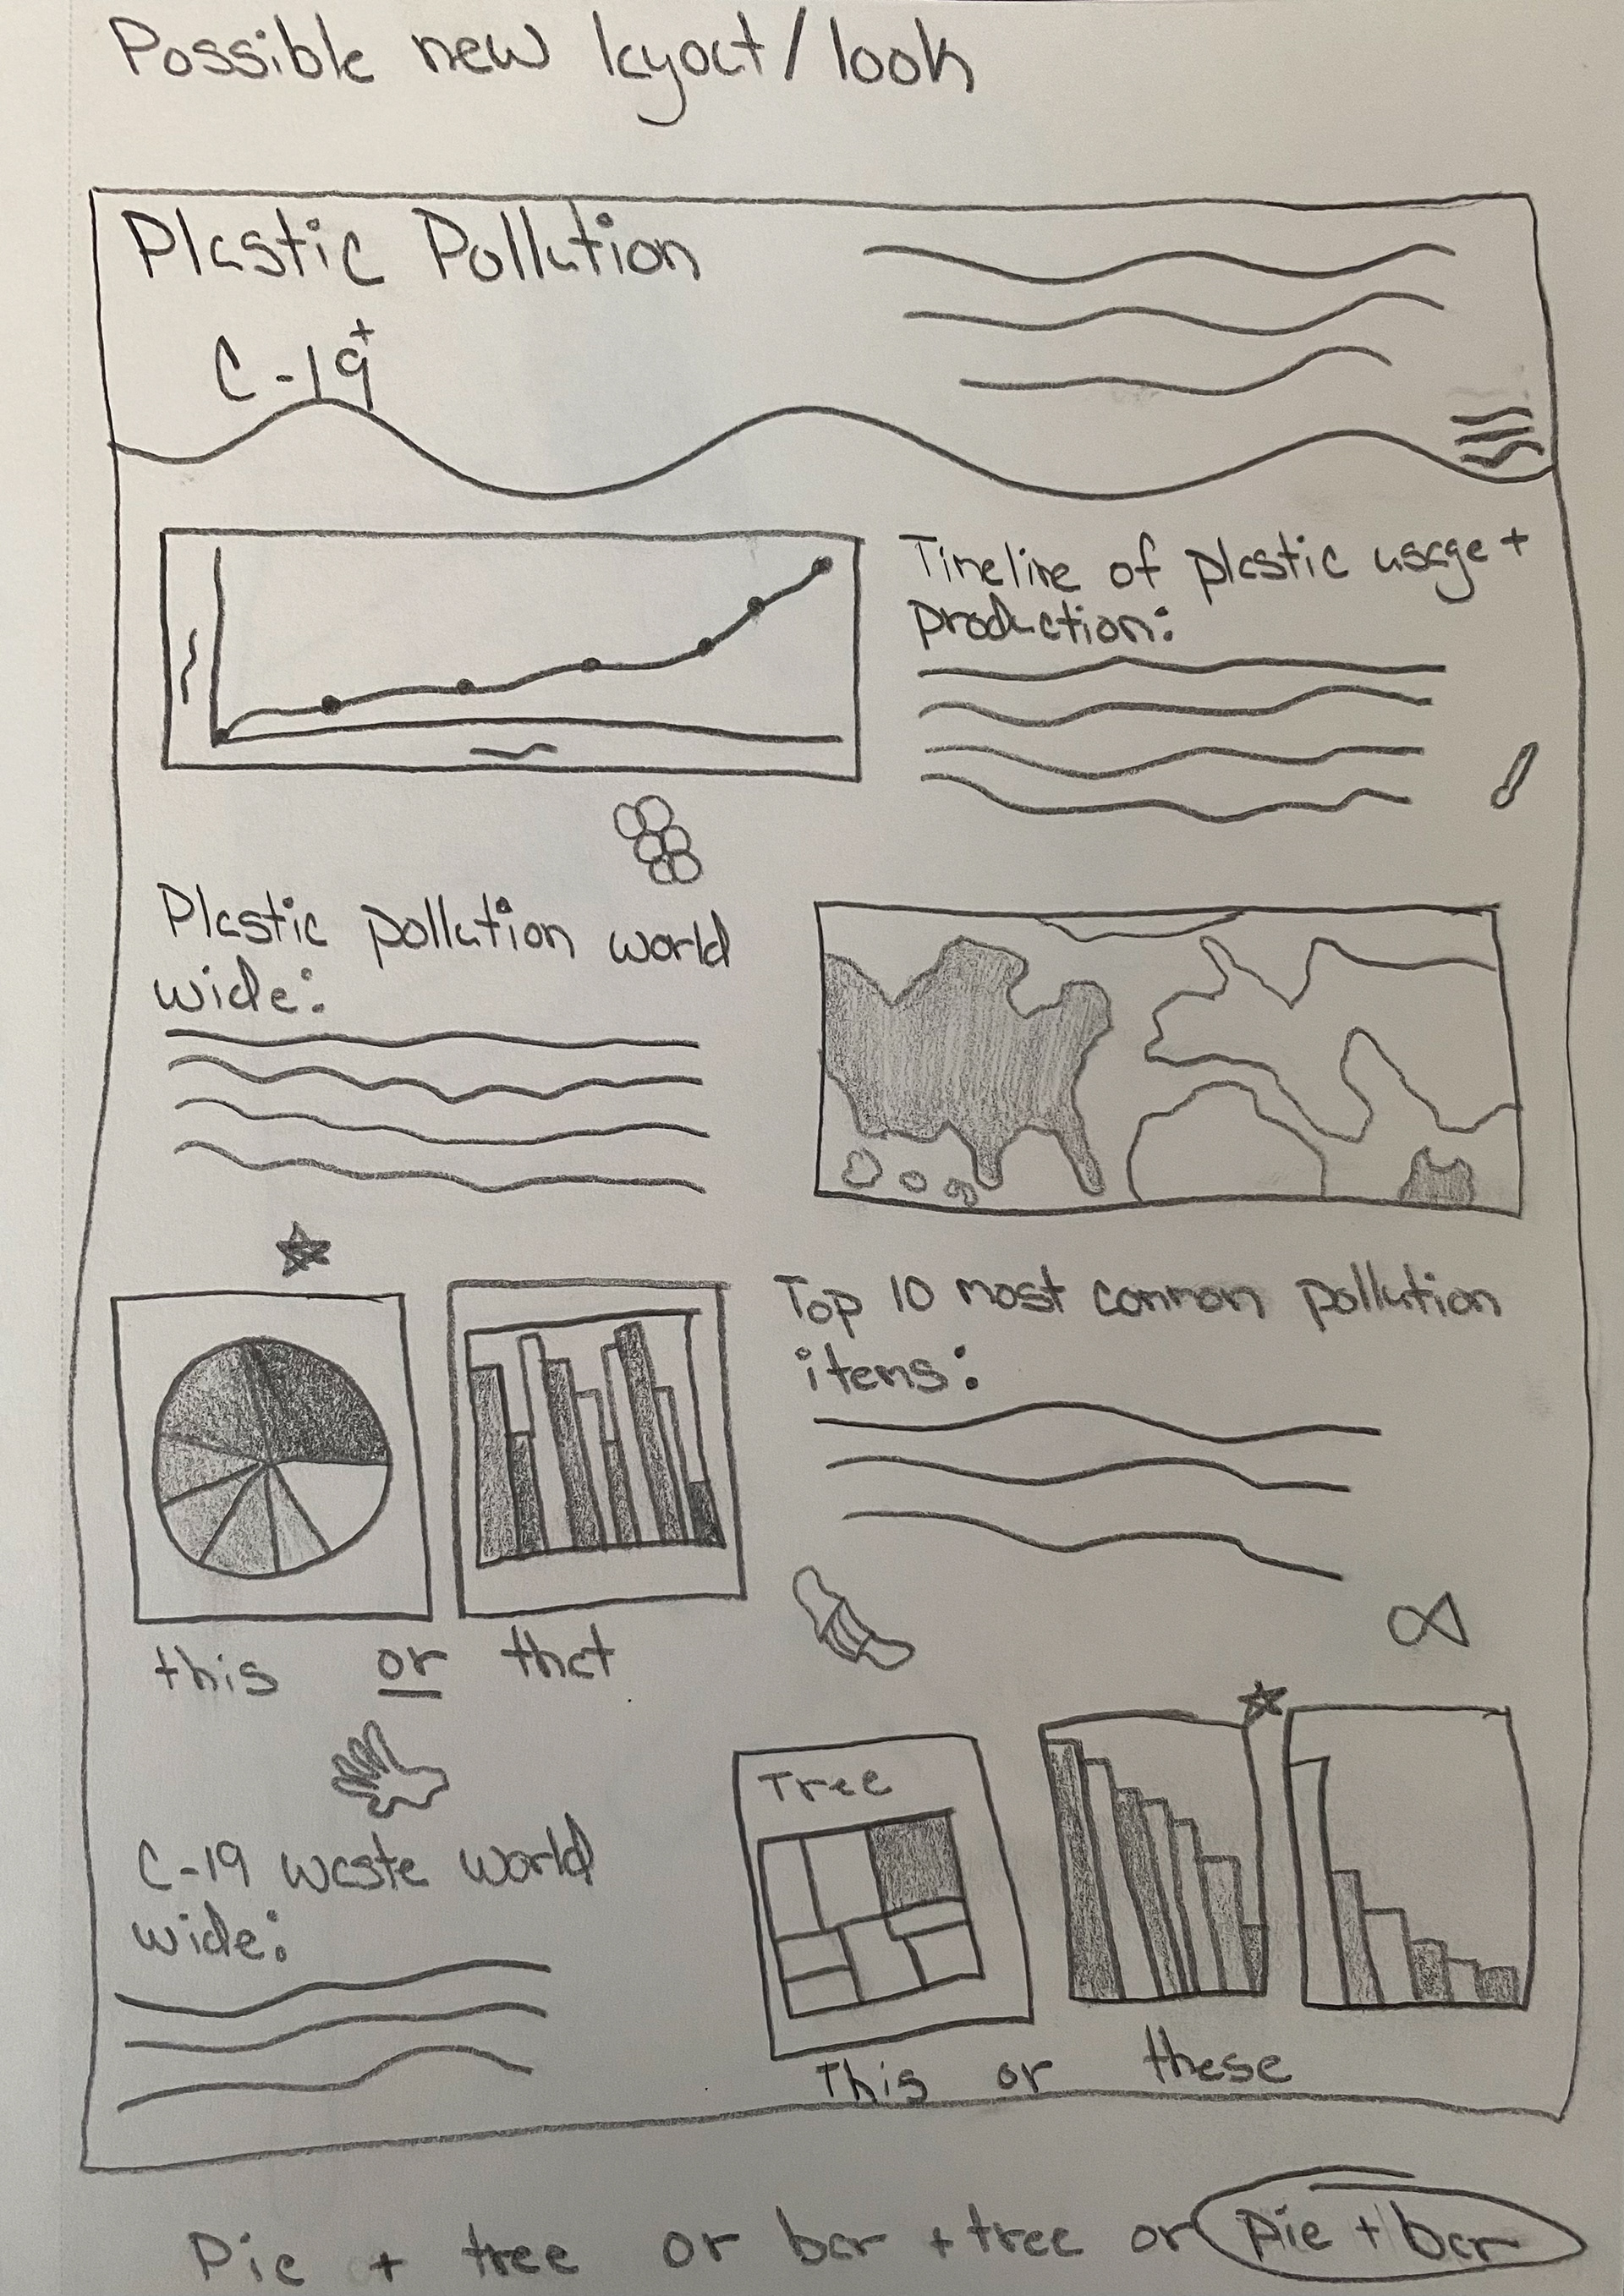 Possible new layout/look
Plastic Pollution
C-19+
Timeline of plastic usage +
production:
Plastic pollution world
wide:
Top 10 most common pollution
items:
this or that
C-19 waste world
wide:
Tree
This or these
Pie + tree or bar + tree or pie + bar